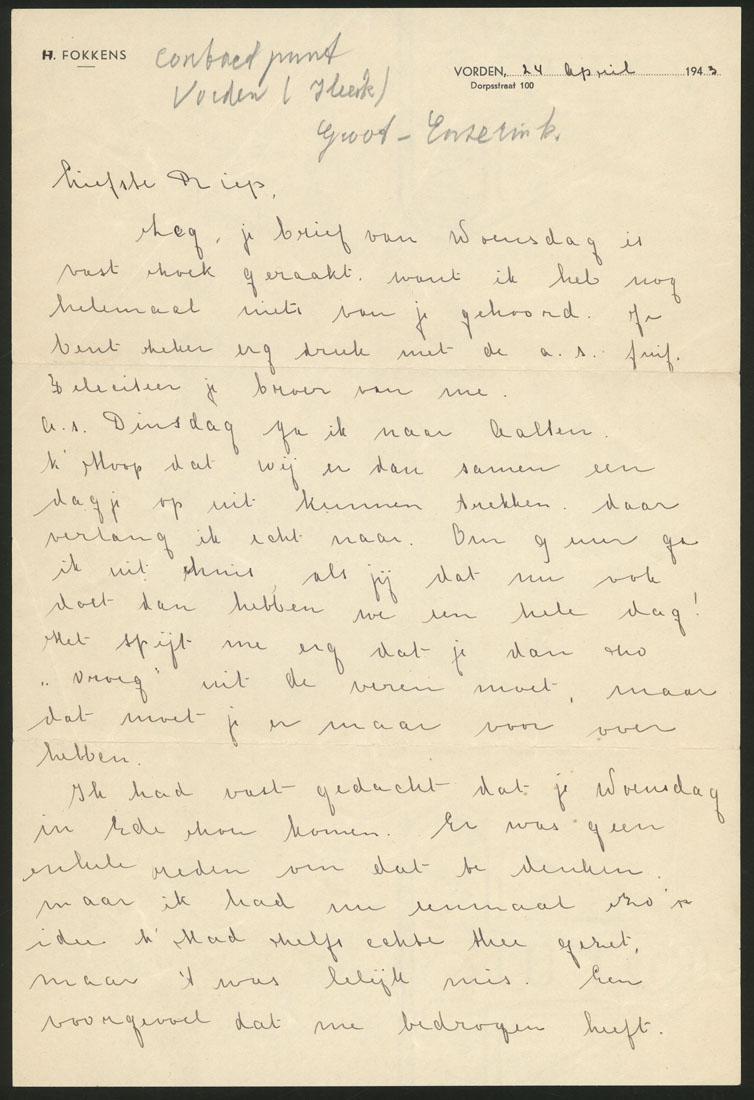 H. FOKKENS
VORDEN, 24 April 1943
Dorpsstraat 100
contact punt
Vorden (
Groot - Enzerink.
Liefste Riep,
Zeg, je brief van Woensdag is
vast zoek geraakt. want ik heb nog
helemaal niets van je gehoord. Je
bent zeker erg druk met de a.s. fuif.
Feliciteer je broer van me.
a.s. Dinsdag ga ik naar Aalten.
k' Hoop dat wij er dan samen een
dagje op uit kunnen trekken. daar
verlang ik echt naar. Om 9 uur ga
ik uit huis, als jij dat nu ook
doet dan hebben we een hele dag!
Het spijt me erg dat je dan zo
„vroeg" uit de veren moet, maar
dat moet je er maar voor over
hebben.
Ik had vast gedacht dat je Woensdag
in Ede zou komen. Er was geen
enkele reden om dat te denken.
maar ik had nu eenmaal zo'n
idee k' Had zelfs echte thee gezet,
maar 't was lelijk mis. Een
voorgevoel dat me bedrogen heeft.